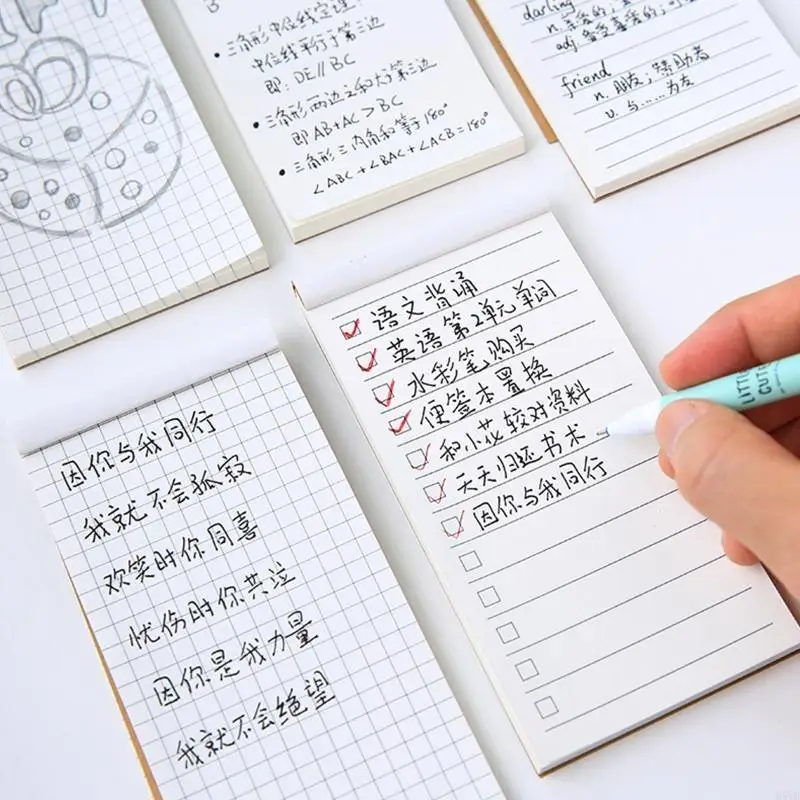 B
• 三角形中位线定理:
中位线平行于第三边
即: DE // BC
• 三角形两边之和大于第三边
即 AB+AC > BC
• 三角形三内角和等于180°
∠ABC + ∠BAC + ∠ACB = 180°
darling
adj.
friend
n. 朋友; 赞助者
v. 与……为友
语文背诵
英语第2单元单词
水彩笔购买
便签本置换
和小花较对资料
天天归还书术
因你与我同行
LITTLE
CUTE
因你与我同行
我就不会孤寂
欢笑时你同喜
忧伤时你共泣
因你是我力量
我就不会绝望